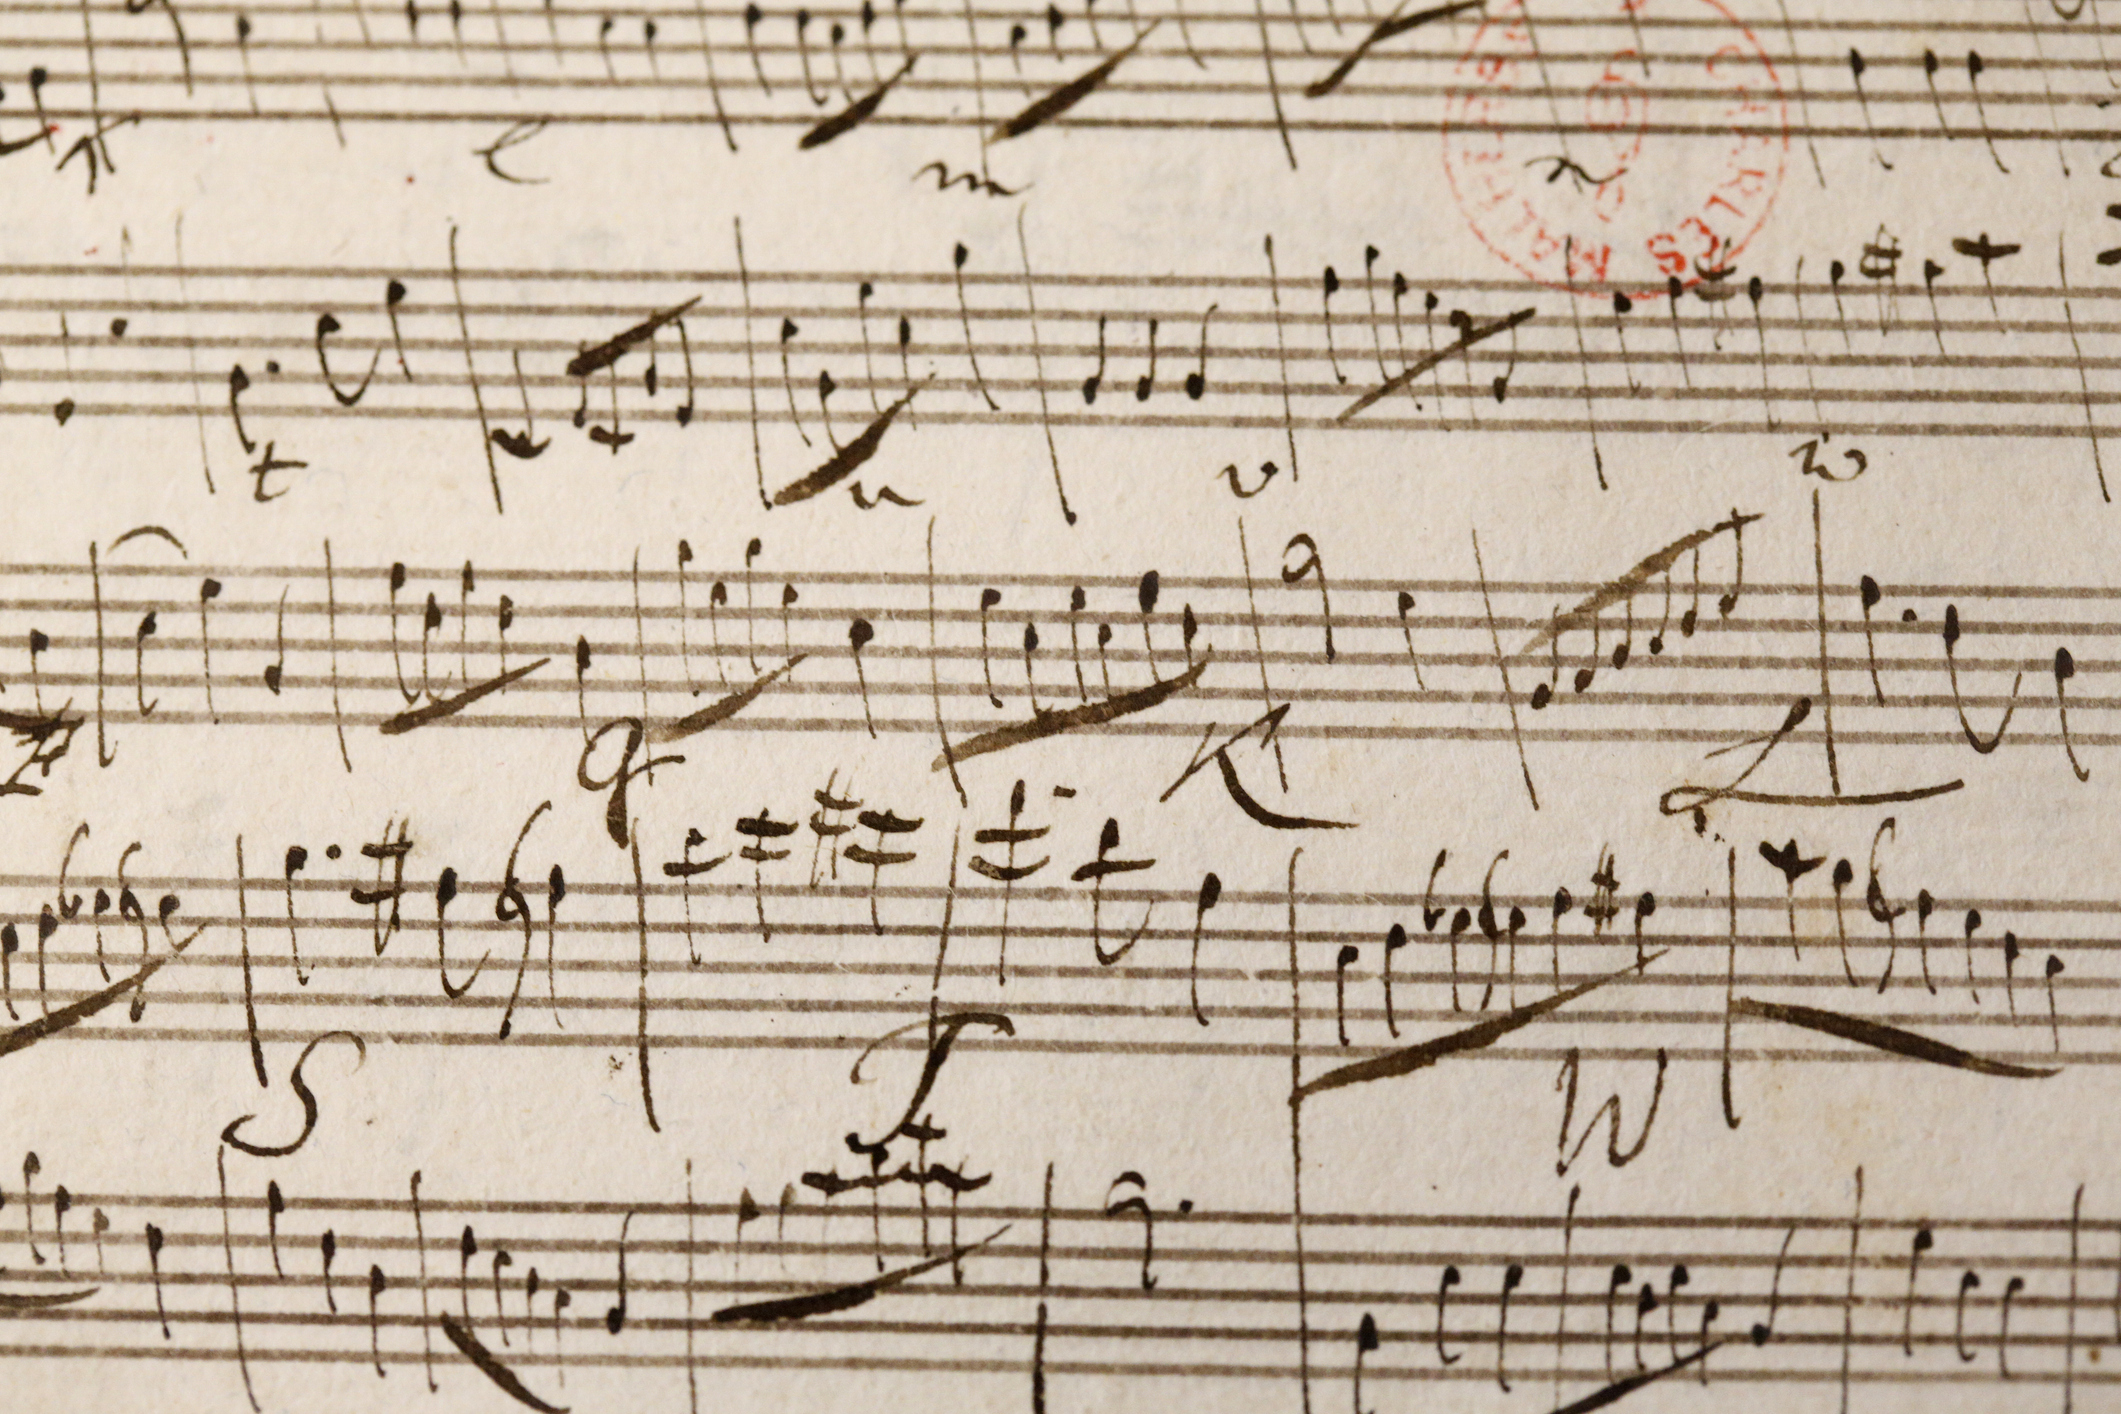 k l m n
CHARLES MALHERBE
t u v w
q K L
S T W